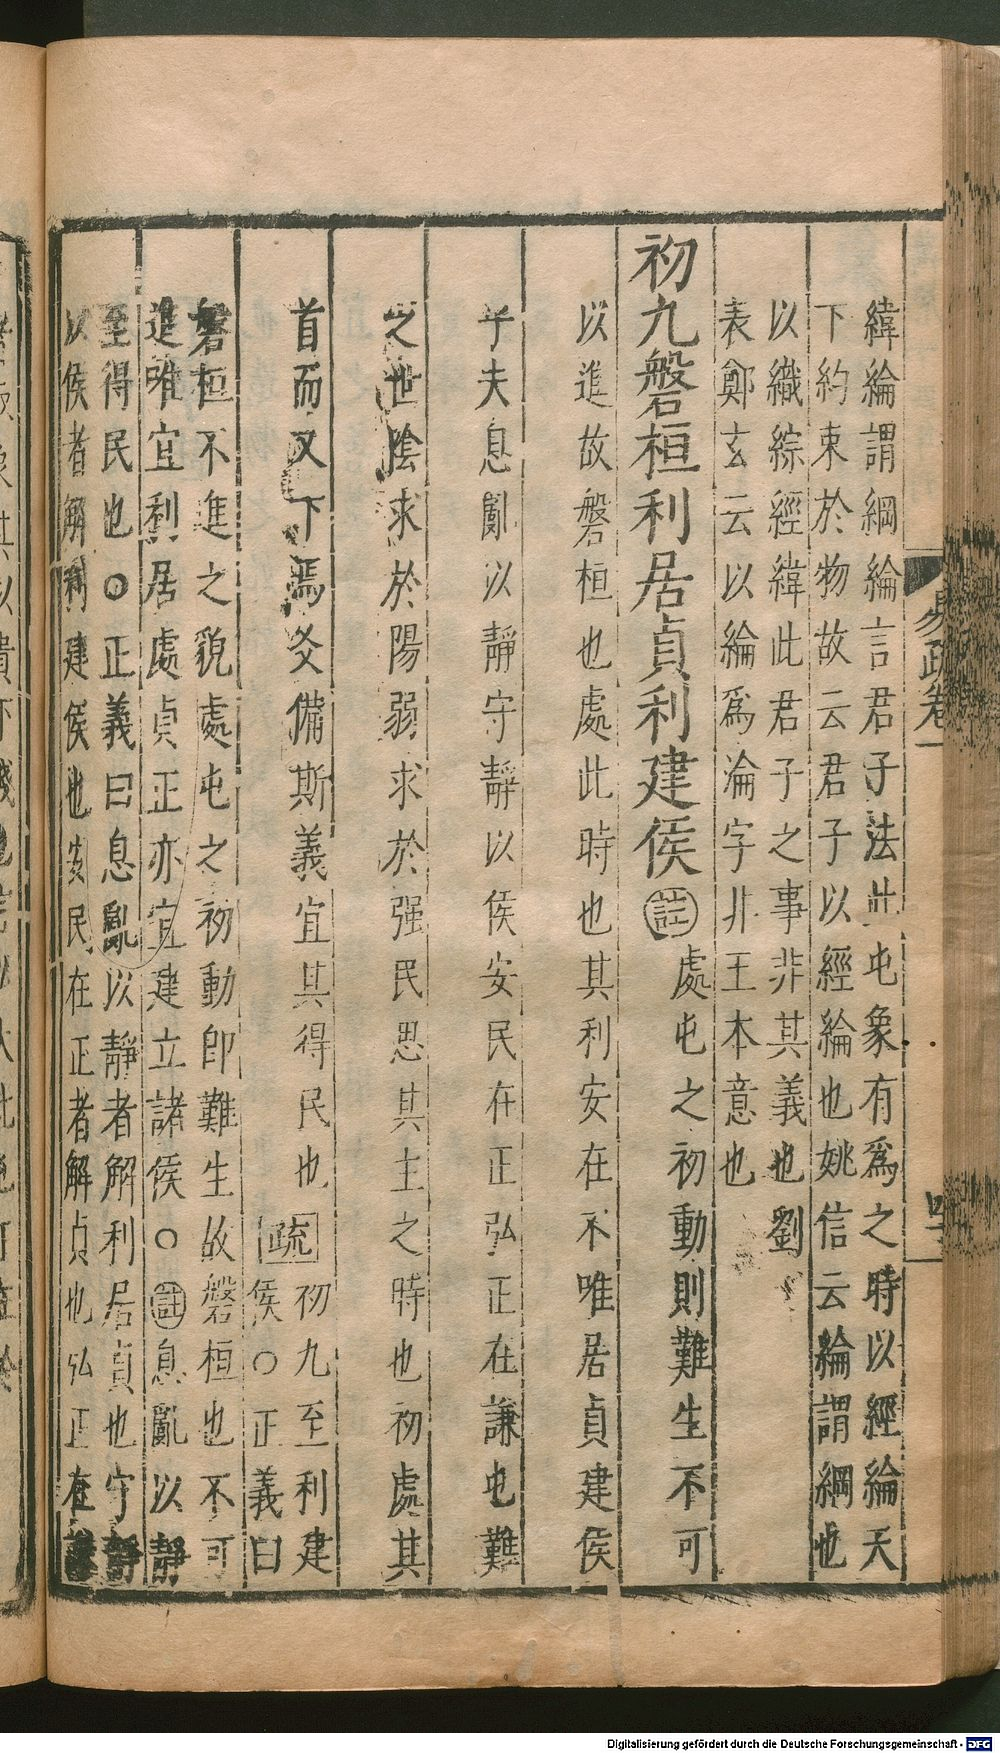 緯綸謂綱綸言君子法此屯象有爲之時以經綸天
下約束於物故云君子以經綸也姚信云綸謂綱也
以織綜經緯此君子之事非其義也劉
表鄭玄云以綸爲淪字非王本意也
初九磐桓利居貞利建侯註處屯之初動則難生不可
以進故磐桓也處此時也其利安在不唯居貞建侯
乎夫息亂以靜守靜以侯安民在正弘正在謙屯難
之世陰求於陽弱求於强民思其主之時也初處其
首而又下焉爻備斯義宜其得民也疏初九至利建
侯○正義曰
磐桓不進之貌處屯之初動即難生故磐桓也不可
進唯宜利居處貞正亦宜建立諸侯○註息亂以靜
至得民也○正義曰息亂以靜者解利居貞也守靜
以侯者解利建侯也安民在正者解貞也弘正在謙
易疏卷一
Digitalisierung gefördert durch die Deutsche Forschungsgemeinschaft - DFG